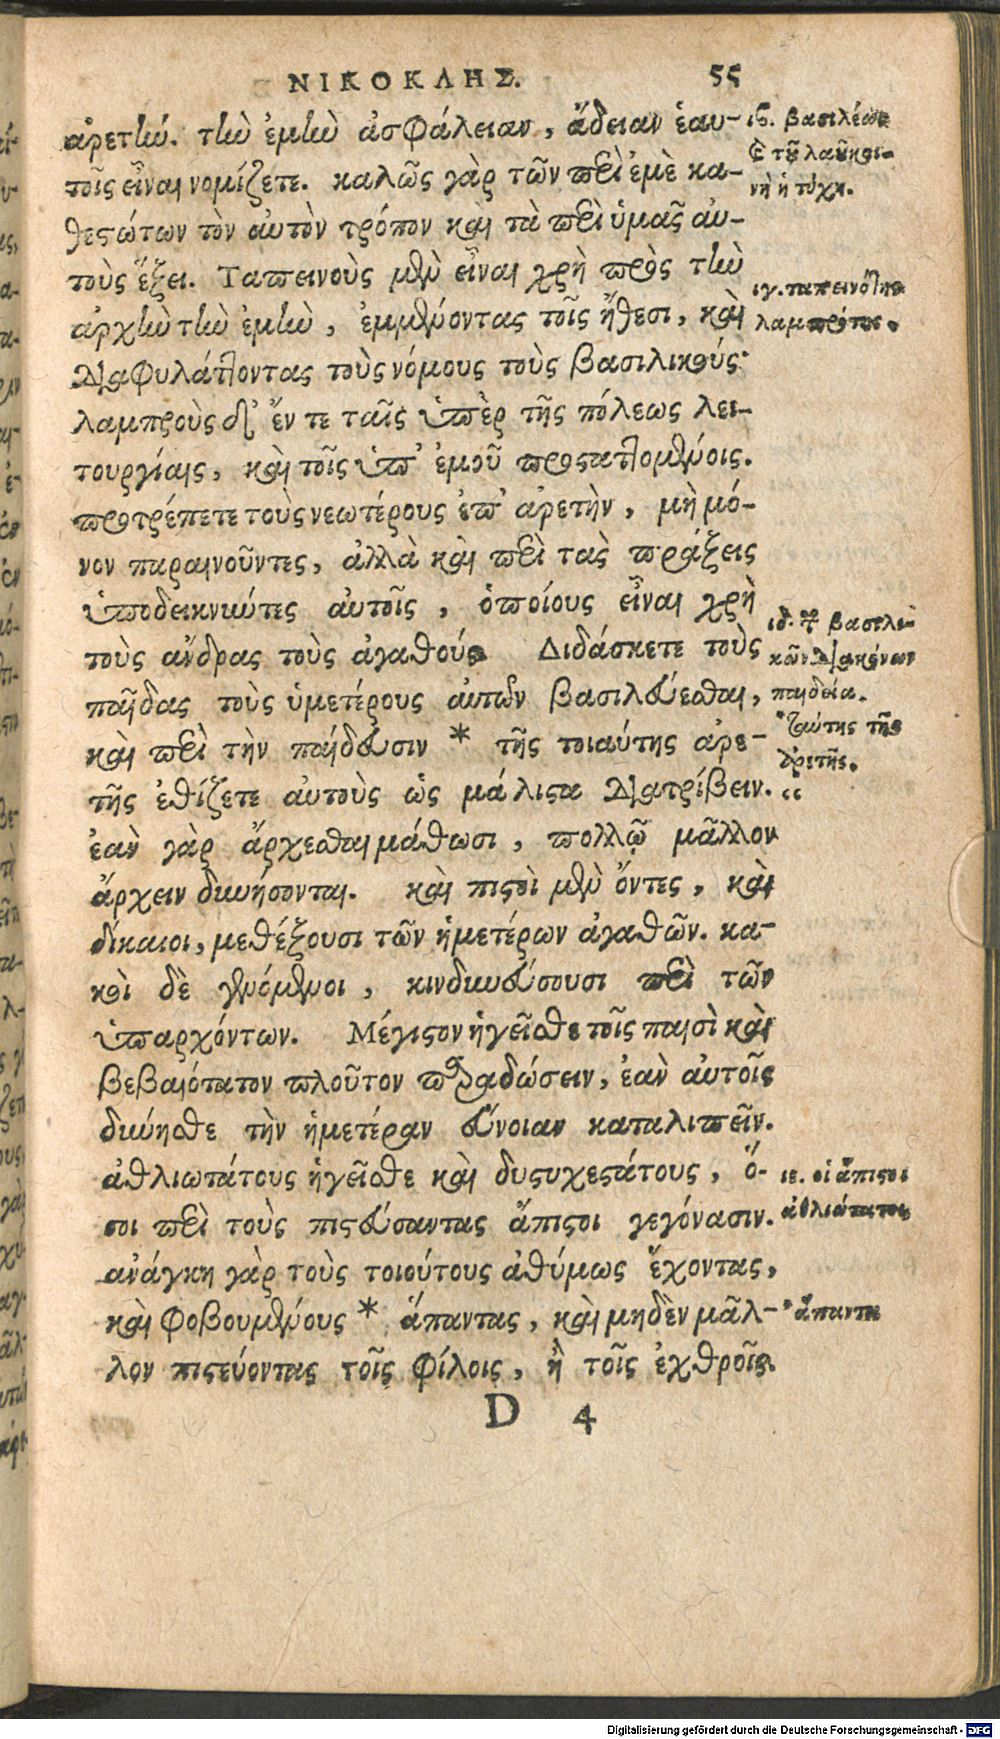 ΝΙΚΟΚΛΗΣ. 55
ἀρετὴν. τὴν ἐμὴν ἀσφάλειαν, ἄδειαν ἑαυ-
τοῖς εἶναι νομίζετε. καλῶς γὰρ τῶν περὶ ἐμὲ κα-
θεστώτων τὸν αὐτὸν τρόπον καὶ τὰ περὶ ὑμᾶς αὐ-
τοὺς ἕξει. Ταπεινοὺς μὲν εἶναι χρὴ πρὸς τὴν
ἀρχὴν τὴν ἐμὴν, ἐμμένοντας τοῖς ἤθεσι, καὶ
διαφυλάττοντας τοὺς νόμους τοὺς βασιλικούς·
λαμπροὺς δ' ἔν τε ταῖς ὑπὲρ τῆς πόλεως λει-
τουργίαις, καὶ τοῖς ὑπ' ἐμοῦ προσταττομένοις.
προτρέπετε τοὺς νεωτέρους ἐπ' ἀρετὴν, μὴ μό-
νον παραινοῦντες, ἀλλὰ καὶ περὶ τὰς πράξεις
ὑποδεικνύντες αὐτοῖς, ὁποίους εἶναι χρὴ
τοὺς ἄνδρας τοὺς ἀγαθούς. Διδάσκετε τοὺς
παῖδας τοὺς ὑμετέρους αὐτῶν βασιλεύεσθαι,
καὶ περὶ τὴν παίδευσιν * τῆς τοιαύτης ἀρε-
τῆς ἐθίζετε αὐτοὺς ὡς μάλιστα διατρίβειν.
ἐὰν γὰρ ἄρχεσθαι μάθωσι, πολλῷ μᾶλλον
ἄρχειν δυνήσονται. καὶ πιστοὶ μὲν ὄντες, καὶ
δίκαιοι, μεθέξουσι τῶν ἡμετέρων ἀγαθῶν. κα-
κοὶ δὲ γενόμενοι, κινδυνεύσουσι περὶ τῶν
ὑπαρχόντων. Μέγιστον ἡγεῖσθε τοῖς παισὶ καὶ
βεβαιότατον πλοῦτον παραδώσειν, ἐὰν αὐτοῖς
δύνησθε τὴν ἡμετέραν εὔνοιαν καταλιπεῖν.
ἀθλιωτάτους ἡγεῖσθε καὶ δυστυχεστάτους, ὅ-
σοι περὶ τοὺς πιστεύσαντας ἄπιστοι γεγόνασιν.
ἀνάγκη γὰρ τοὺς τοιούτους ἀθύμως ἔχοντας,
καὶ φοβουμένους * ἅπαντας, καὶ μηδὲν μᾶλ-
λον πιστεύοντας τοῖς φίλοις, ἢ τοῖς ἐχθροῖς
D 4
ιβ. βασιλέως
καὶ τοῦ λαοῦ κοι-
νὴ ἡ τύχη.
ιγ. ταπεινότης
ιδ. βασιλι-
κῶν
παιδεία.
* ταύτης τῆς
ἀρετῆς.
“
ιε. οἱ ἄπιστοι
ἀθλιώτατοι
* ἅπαντα
Digitalisierung gefördert durch die Deutsche Forschungsgemeinschaft - DFG